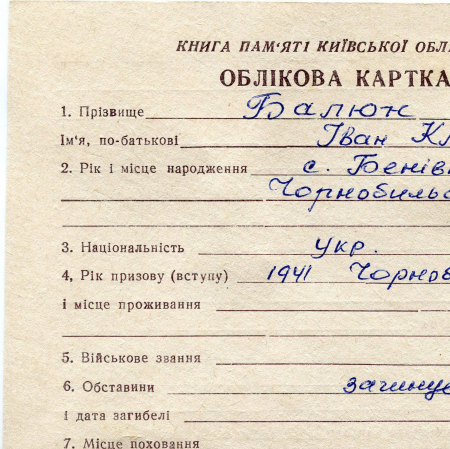 КНИГА ПАМ'ЯТІ КИЇВСЬКОЇ ОБЛ
ОБЛІКОВА КАРТКА
1. Прізвище Балюк
Ім'я, по-батькові Іван Кл
2. Рік і місце народження с. Бенів
Чорнобильс
3. Національність укр.
4, Рік призову (вступу) 1941 Чорноб
і місце проживання
5. Військове звання
6. Обставини загинув
і дата загибелі
7. Місце поховання